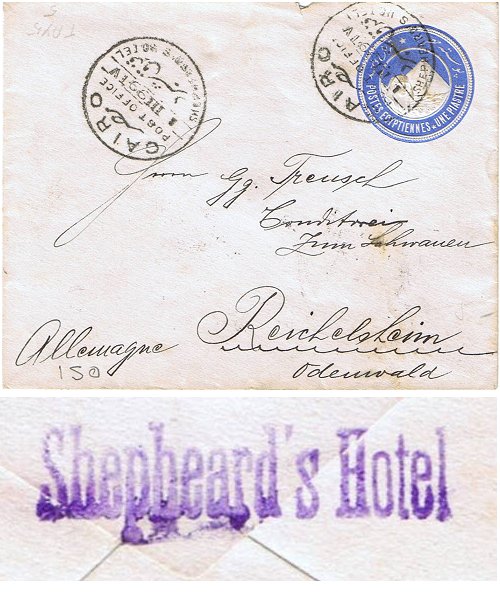 CAIRO
POST OFFICE
(SHEPHEARD'S HOTEL)
CAIRO
POSTES EGYPTIENNES - UNE PIASTRE
Herrn Gg. Treusch
Conditorei
zum Schwanen
Reichelsheim
Odenwald
Allemagne
150
Shepheard's Hotel